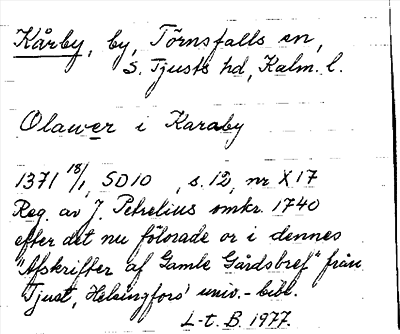 Kårby, by, Törnsfalls sn,
S. Tjusts hd, Kalm. l.
Olawer i Karaby
1371 18/1, SD10, s. 12, nr X17
Reg. av J. Petrelius omkr. 1740
efter det nu förlorade or i dennes
"Afskrifter af Gamle Gårdsbref" från
Tjust, Helsingfors' univ.-bibl.
L-t. B. 1977